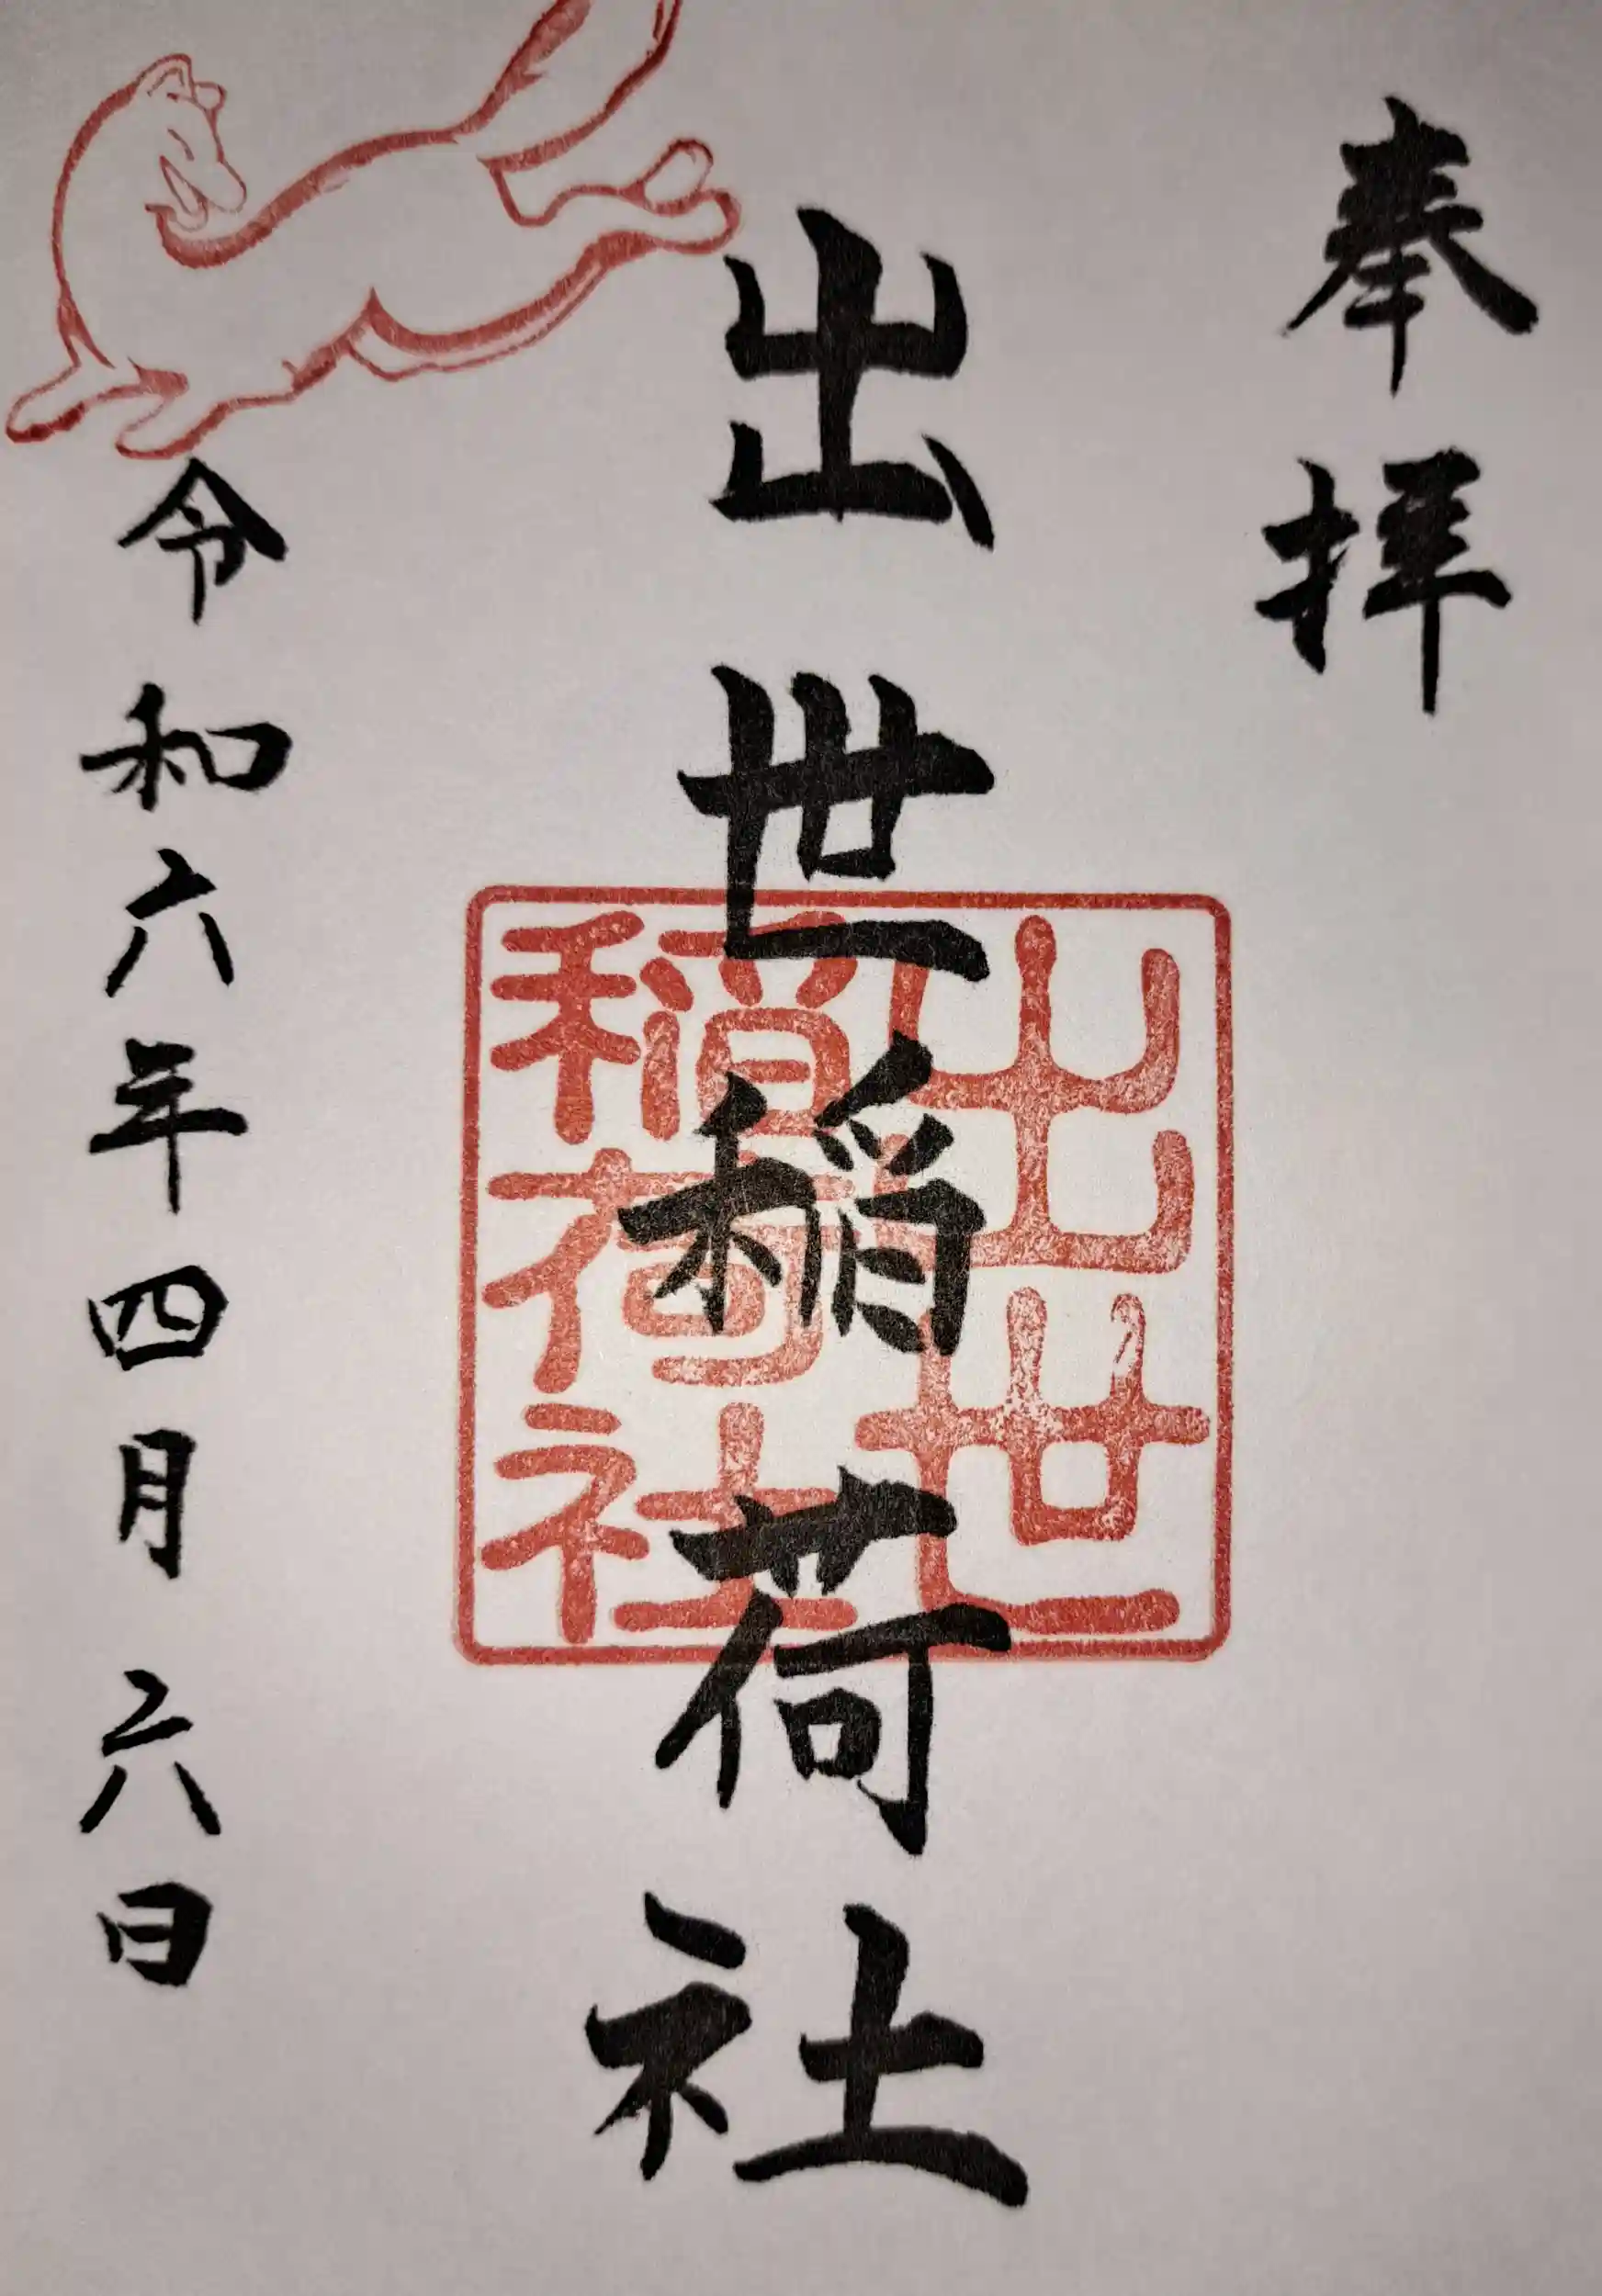 奉拝
出世稲荷社
出世
稲荷社
令和六年四月六日